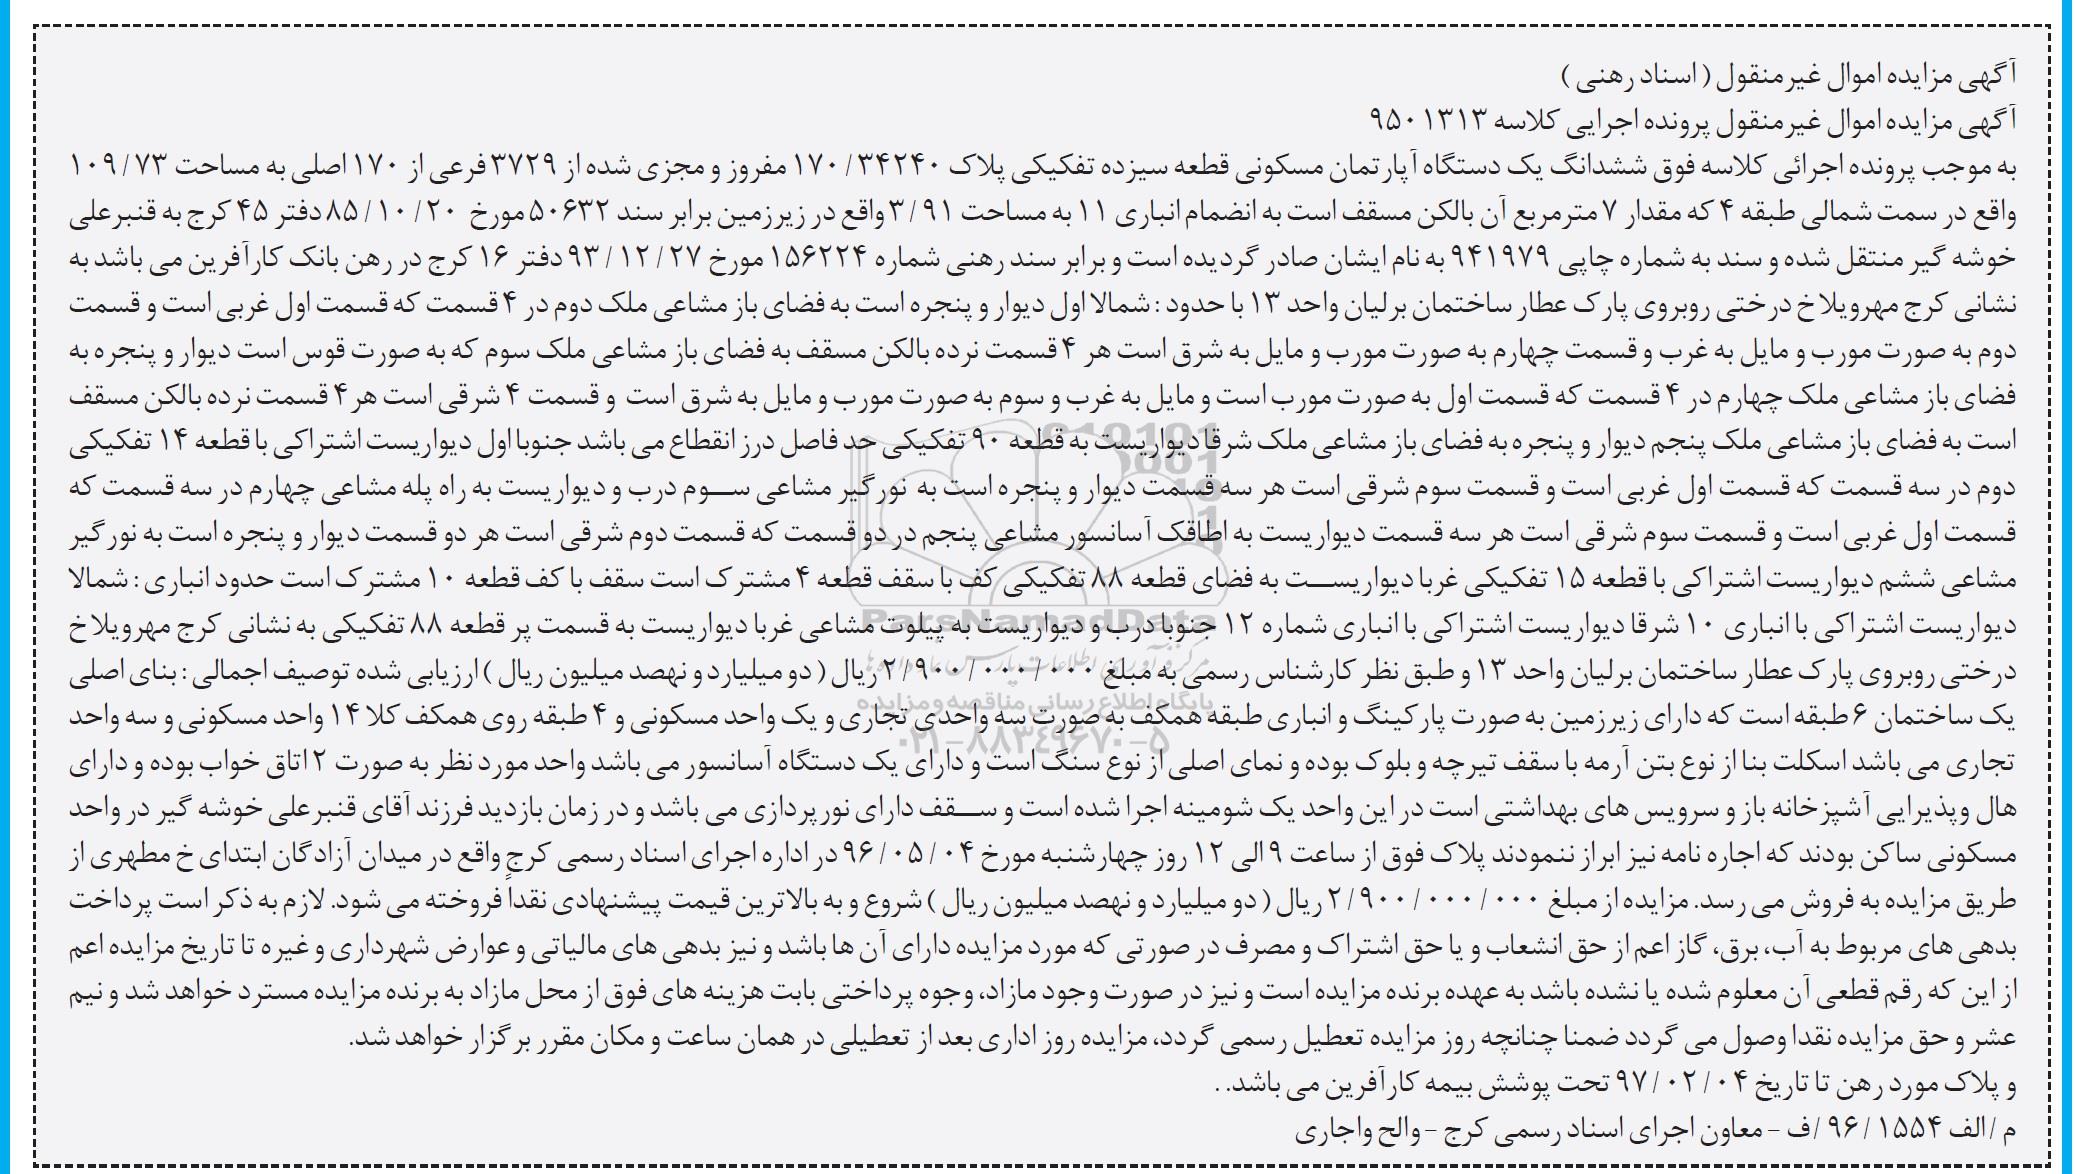 آگهی مزایده اموال غیرمنقول ( اسناد رهنی )
آگهی مزایده اموال غیرمنقول پرونده اجرایی کلاسه ۹۵۰۱۳۱۳
به موجب پرونده اجرائی کلاسه فوق ششدانگ یک دستگاه آپارتمان مسکونی قطعه سیزده تفکیکی پلاک ۱۷۰/۳۴۲۴۰ مفروز و مجزی شده از ۳۷۲۹ فرعی از ۱۷۰ اصلی به مساحت ۱۰۹/۷۳
واقع در سمت شمالی طبقه ۴ که مقدار ۷ مترمربع آن بالکن مسقف است به انضمام انباری ۱۱ به مساحت ۳/۹۱ واقع در زیرزمین برابر سند ۵۰۶۳۲ مورخ ۸۵/۱۰/۲۰ دفتر ۴۵ کرج به قنبرعلی
خوشه گیر منتقل شده و سند به شماره چاپی ۹۴۱۹۷۹ به نام ایشان صادر گردیده است و برابر سند رهنی شماره ۱۵۶۲۲۴ مورخ ۹۳/۱۲/۲۷ دفتر ۱۶ کرج در رهن بانک کارآفرین می باشد به
نشانی کرج مهرویلا خ درختی روبروی پارک عطار ساختمان برلیان واحد ۱۳ با حدود : شمالا اول دیوار و پنجره است به فضای باز مشاعی ملک دوم در ۴ قسمت که قسمت اول غربی است و قسمت
دوم به صورت مورب و مایل به غرب و قسمت چهارم به صورت مورب و مایل به شرق است هر ۴ قسمت نرده بالکن مسقف به فضای باز مشاعی ملک سوم که به صورت قوس است دیوار و پنجره به
فضای باز مشاعی ملک چهارم در ۴ قسمت که قسمت اول به صورت مورب است و مایل به غرب و سوم به صورت مورب و مایل به شرق است و قسمت ۴ شرقی است هر۴ قسمت نرده بالکن مسقف
است به فضای باز مشاعی ملک پنجم دیوار و پنجره به فضای باز مشاعی ملک شرقا دیواریست به قطعه ۹۰ تفکیکی حد فاصل درز انقطاع می باشد جنوبا اول دیواریست اشتراکی با قطعه ۱۴ تفکیکی
دوم در سه قسمت که قسمت اول غربی است و قسمت سوم شرقی است هر سه قسمت دیوار و پنجره است به نورگیر مشاعی سوم درب و دیواریست به راه پله مشاعی چهارم در سه قسمت که
قسمت اول غربی است و قسمت سوم شرقی است هر سه قسمت دیواریست به اطاقک آسانسور مشاعی پنجم در دو قسمت که قسمت دوم شرقی است هر دو قسمت دیوار و پنجره است به نورگیر
مشاعی ششم دیواریست اشتراکی با قطعه ۱۵ تفکیکی غربا دیواریست به فضای قطعه ۸۸ تفکیکی کف با سقف قطعه ۴ مشترک است سقف با کف قطعه ۱۰ مشترک است حدود انباری : شمالا
دیواریست اشتراکی با انباری ۱۰ شرقا دیواریست اشتراکی با انباری شماره ۱۲ جنوبا درب و دیواریست به پیلوت مشاعی غربا دیواریست به قسمت پر قطعه ۸۸ تفکیکی به نشانی کرج مهرویلا خ
درختی روبروی پارک عطار ساختمان برلیان واحد ۱۳ و طبق نظر کارشناس رسمی به مبلغ ۲/۹۰۰/۰۰۰/۰۰۰ ریال ( دو میلیارد و نهصد میلیون ریال ) ارزیابی شده توصیف اجمالی : بنای اصلی
یک ساختمان ۶ طبقه است که دارای زیرزمین به صورت پارکینگ و انباری طبقه همکف به صورت سه واحدی تجاری و یک واحد مسکونی و ۴ طبقه روی همکف کلا ۱۴ واحد مسکونی و سه واحد
تجاری می باشد اسکلت بنا از نوع بتن آرمه با سقف تیرچه و بلوک بوده و نمای اصلی از نوع سنگ است و دارای یک دستگاه آسانسور می باشد واحد مورد نظر به صورت ۲ اتاق خواب بوده و دارای
هال وپذیرایی آشپزخانه باز و سرویس های بهداشتی است در این واحد یک شومینه اجرا شده است و سقف دارای نورپردازی می باشد و در زمان بازدید فرزند آقای قنبرعلی خوشه گیر در واحد
مسکونی ساکن بودند که اجاره نامه نیز ابراز ننمودند پلاک فوق از ساعت ۹ الی ۱۲ روز چهارشنبه مورخ ۹۶/۰۵/۰۴ در اداره اجرای اسناد رسمی کرج واقع در میدان آزادگان ابتدای خ مطهری از
طریق مزایده به فروش می رسد. مزایده از مبلغ ۲/۹۰۰/۰۰۰/۰۰۰ ریال ( دو میلیارد و نهصد میلیون ریال ) شروع و به بالاترین قیمت پیشنهادی نقداً فروخته می شود. لازم به ذکر است پرداخت
بدهی های مربوط به آب، برق، گاز اعم از حق انشعاب و یا حق اشتراک و مصرف در صورتی که مورد مزایده دارای آن ها باشد و نیز بدهی های مالیاتی و عوارض شهرداری و غیره تا تاریخ مزایده اعم
از این که رقم قطعی آن معلوم شده یا نشده باشد به عهده برنده مزایده است و نیز در صورت وجود مازاد، وجوه پرداختی بابت هزینه های فوق از محل مازاد به برنده مزایده مسترد خواهد شد و نیم
عشر و حق مزایده نقدا وصول می گردد ضمنا چنانچه روز مزایده تعطیل رسمی گردد، مزایده روز اداری بعد از تعطیلی در همان ساعت و مکان مقرر برگزار خواهد شد.
و پلاک مورد رهن تا تاریخ ۹۷/۰۲/۰۴ تحت پوشش بیمه کارآفرین می باشد. .
م /الف ۹۶/۱۵۵۴ /ف – معاون اجرای اسناد رسمی کرج – والح واجاری
ParsNamadData
پایگاه اطلاع رسانی مناقصه و مزایده
۰۲۱-۸۸۳۴۹۶۷۰-۵